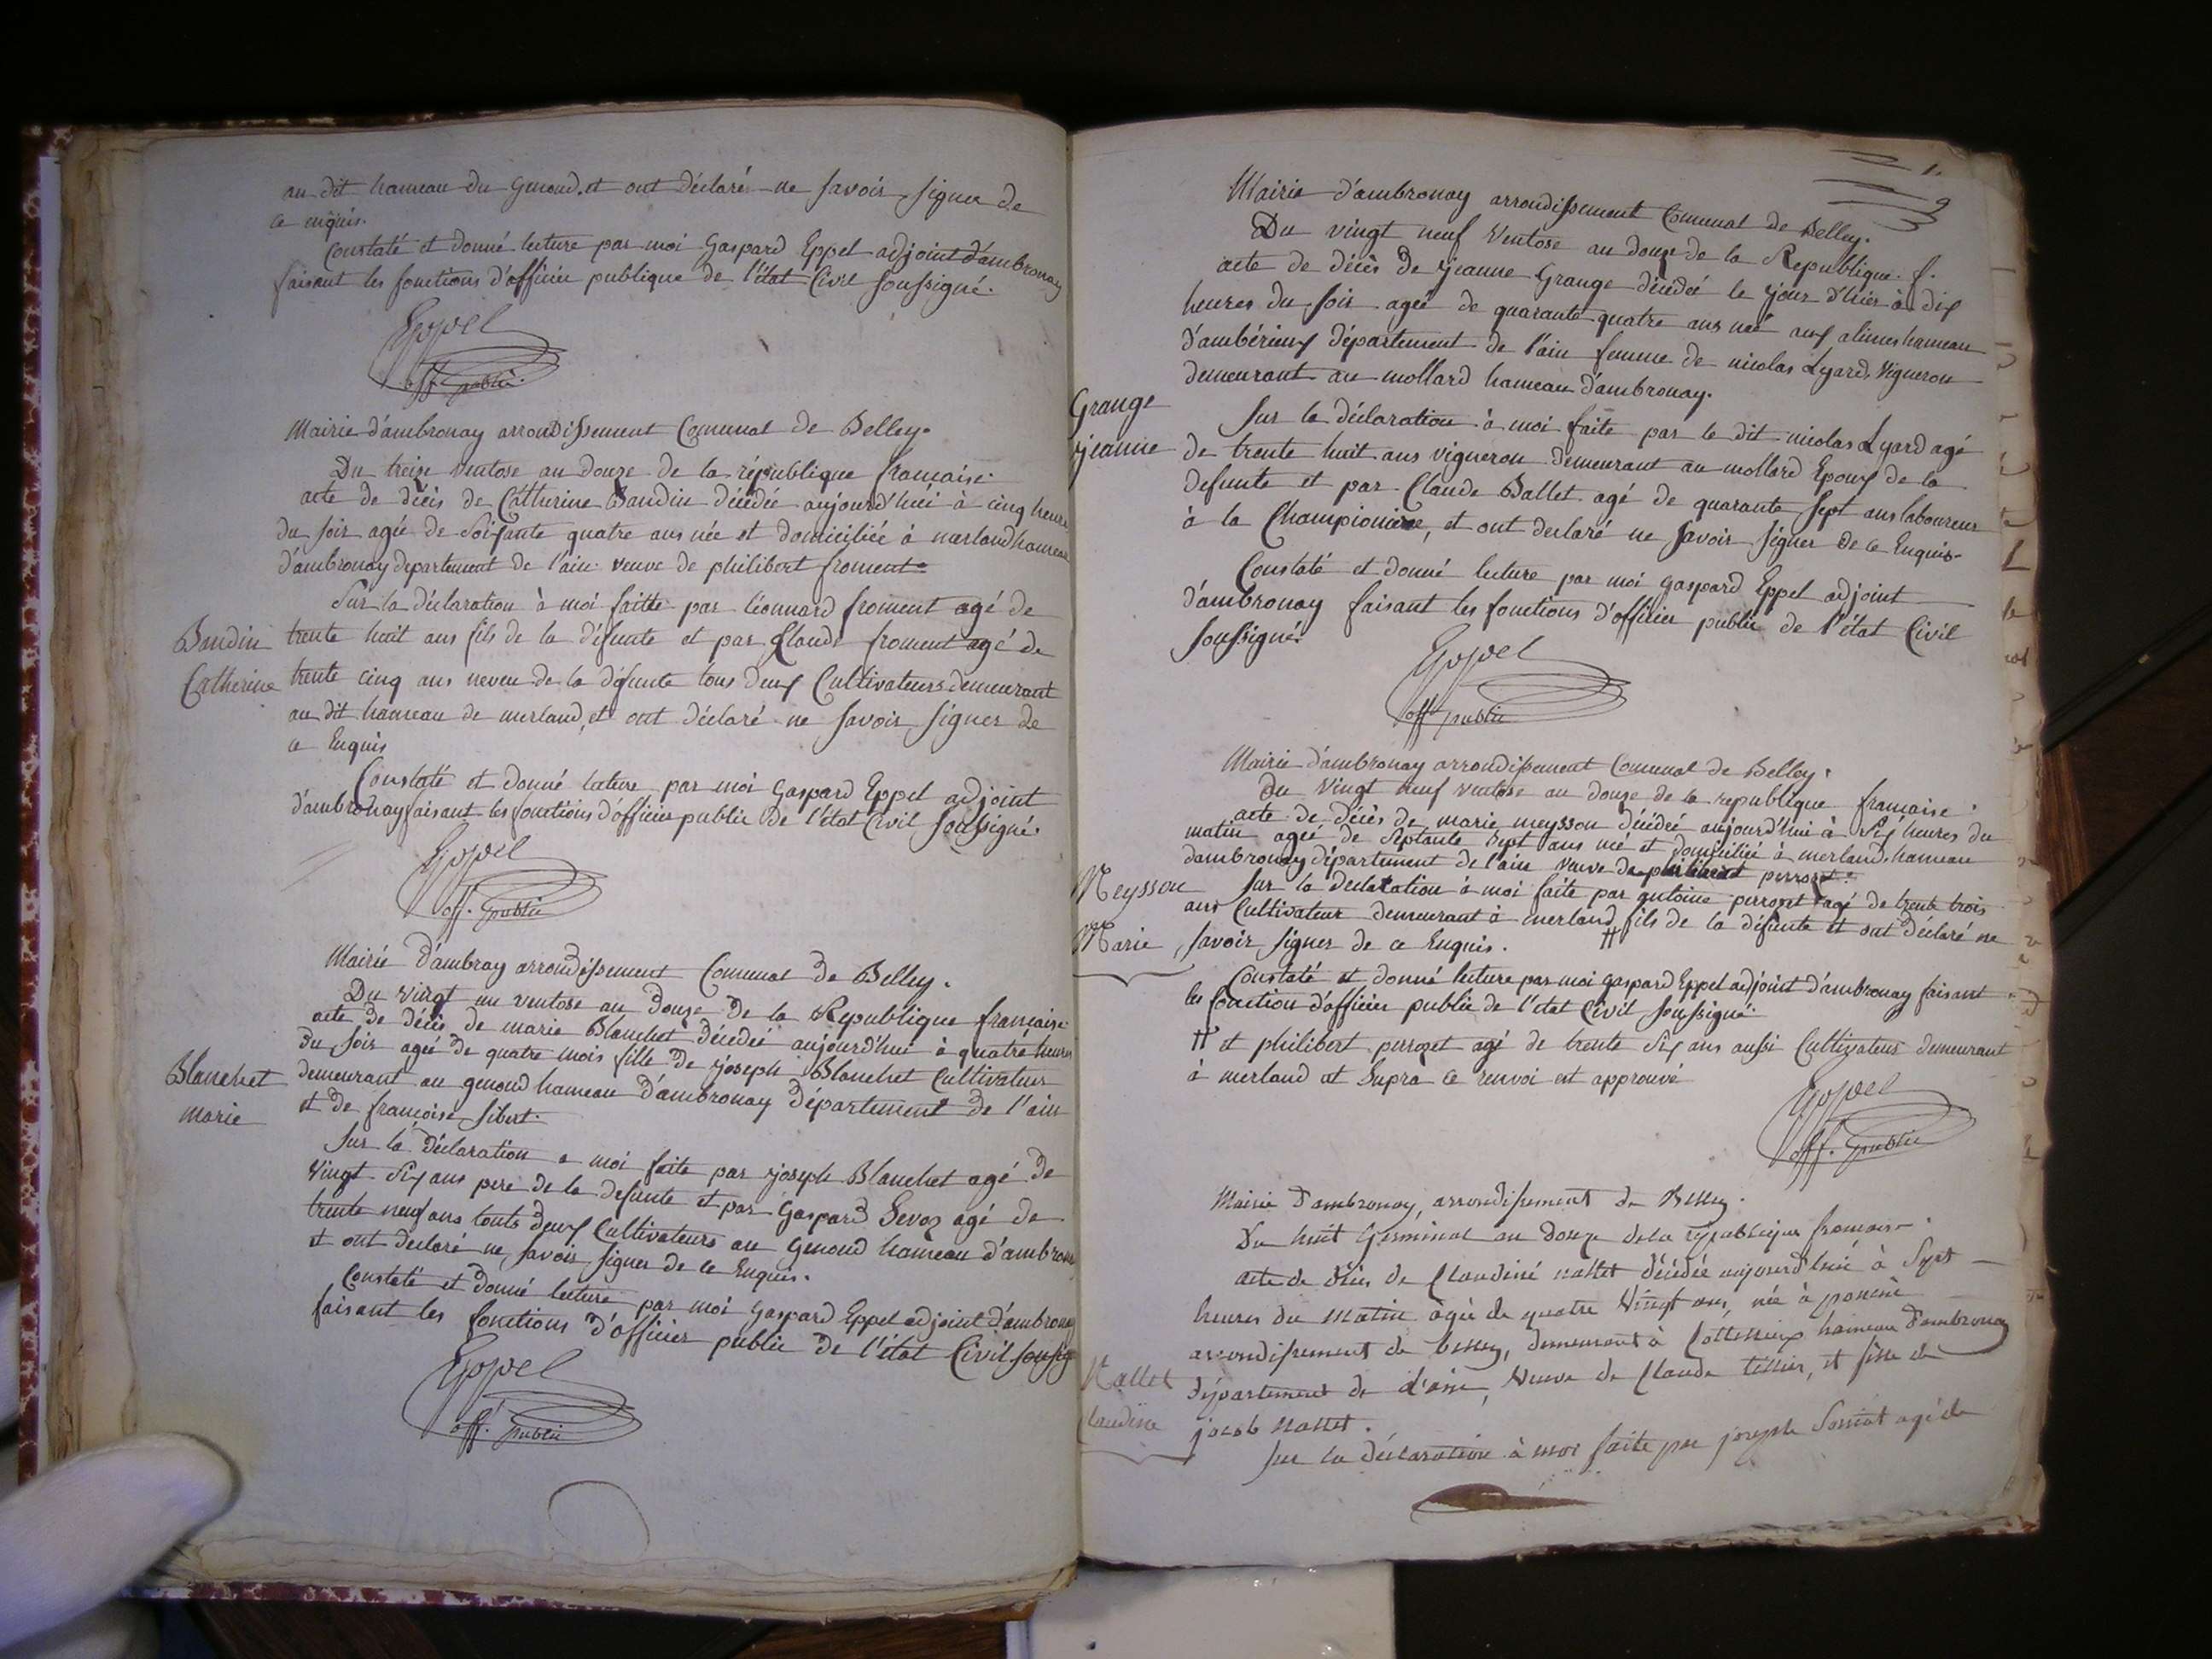 au dit hameau du genoud. et ont déclaré ne savoir signer de
ce enquis.
Constaté et donné lecture par moi Gaspard Eppel adjoint d'ambronay
faisant les fonctions d'officier publique de l'état Civil soussigné.
Eppel
off. public.
Mairie d'ambronay arrondissement Comunal de Belley.
Du treize ventose an douze de la république francaise.
acte de décès de Catherine Baudin décédée aujourd'hui à cinq heures
du soir agée de Soixante quatre ans née et domiciliée à merland hameau
d'ambronay departement de l'ain veuve de philibert froment
Sur la déclaration à moi faitte par léonnard froment agé de
Baudin
Catherine
trente huit ans fils de la défunte et par Claude froment agé de
trente cinq ans neveu de la défunte tous deux Cultivateurs demeurant
au dit hameau de merland, et ont déclaré ne savoir signer de
ce Enquis
Constaté et donné lecture par moi Gaspard Eppel adjoint
d'ambronay faisant les fonctions d'officier public de l'état Civil soussigné.
Eppel
off. public
Mairié d'ambray arrondissement Comunal de Belley.
Du vingt un ventose an douze de la Republique française
acte de décès de marie Blanchet décédée aujourd'hui à quatre heures
du soir agée de quatre mois fille de joseph Blanchet Cultivateur
Blanchet
marie
demeurant au genoud hameau d'ambronay département de l'ain
et de francoise sibert.
Sur la déclaration a moi faite par joseph Blanchet agé de
vingt six ans pere de la defunte et par Gaspard agé de
trente neuf ans touts deux Cultivateurs au Genoud hameau d'ambronay
et ont declaré ne savoir signer de ce Enquis.
Constaté et donné lecture par moi gaspard Eppel adjoint d'ambronay
faisant les fonctions d'officier public de l'état Civil soussigé
Eppel
off. public
Mairie d'ambronay arrondissement Comunal de Belley.
Du vingt neuf ventose an douze de la Republique. f.
acte de décès de jeanne Grange décédée le jour d'hier à dix
heures du soir agée de quarante quatre ans née aux alimes hameau
d'ambérieux département de l'ain femme de nicolas Lyard, vigneron
demeurant au mollard hameau d'ambronay.
Grange
jeanne
Sur la déclaration à moi faite par le dit nicolas Lyard agé
de trente huit ans vigneron demeurant au mollard Epoux de la
defunte et par Claude Ballet agé de quarante sept ans laboureur
à la Championiere, et ont declaré ne savoir signer de ce Enquis
Constaté et donné lecture par moi gaspard Eppel adjoint
d'ambronay faisant les fonctions d'officier public de l'état Civil
soussigné
Eppel
off public
Mairie d'ambronay arrondissement Comunal de Belley.
Du vingt neuf ventose an douze de la republique francaise
acte de décès de marie meysson décédée aujourd'hui à six heures du
matin agée de septante sept ans née et domiciliée à merland hameau
d'ambronay département de l'ain veuve de philibert perroset
Meysson
Marie
Sur la declaration à moi faite par antoine perroset agé de trente trois
ans Cultivateur demeurant à merland # fils de la défunte et ont déclaré ne
savoir signer de ce Enquis.
Constaté et donné lecture par moi gaspard Eppel adjoint d'ambronay faisant
les fonction d'officier public de l'état Civil soussigné.
# et philibert perroset agé de trente six ans aussi Cultivateur demeurant
à merland et suprà ce renvoi est approuvé
Eppel
off. public
Mairie d'ambronay, arrondissement de Belley.
Du huit Germinal an douze de la république francaise.
acte de décès de Claudine nallet décédée aujourd'hui à sept
heures du matin agée de quatre vingt ans, née à poncin
arrondissement de belley, demeurant à hameau d'ambronay
Nallet
Claudine
département de d'ain, veuve de Claude tissier, et fille de
jacob nallet.
Sur la déclaration à moi faite par joseph agé de